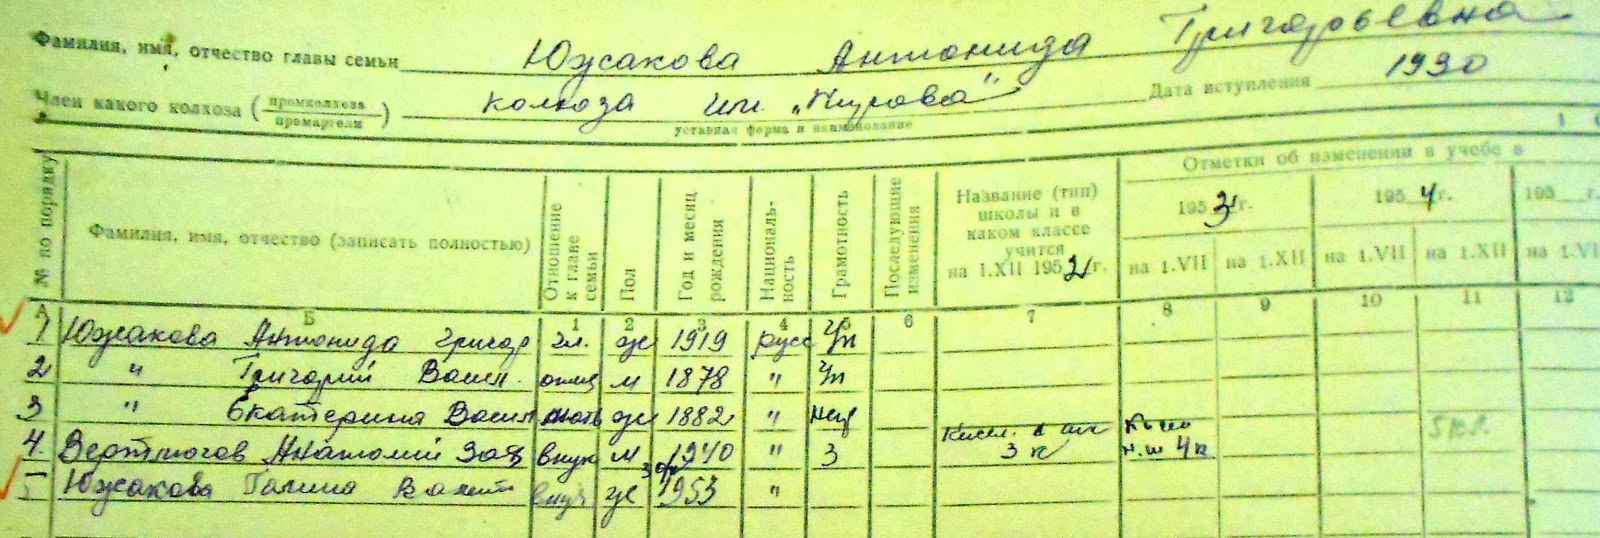 Фамилия, имя, отчество главы семьи Южакова Антонида Григорьевна
Член какого колхоза (промколхоза промартели) колхоза им. „Кирова" Дата вступления 1930
уставная форма и наименование
№ по порядку Фамилия, имя, отчество (записать полностью) Отношение к главе семьи Пол Год и месяц рождения Националь-ность Грамотность Последующие изменения Название (тип) школы и в каком классе учится на 1.XII 1952 г. Отметки об изменении в учебе в
1953 г. 1954 г. 195 г.
на 1.VII на 1.XII на 1.VII на 1.XII на 1.VII
А Б 1 2 3 4 5 6 7 8 9 10 11 12
1 Южакова Антонида Григор гл. ж 1919 русс ч/п
2 " Григорий Васил. отец м 1878 " ч/п
3 " Екатерина Васил мать ж 1882 " негр
4. Анатолий внук м 1940 " 3 3 к н.ш 4 к 5 кл.
5 Южакова Галина внуч ж 1953 "